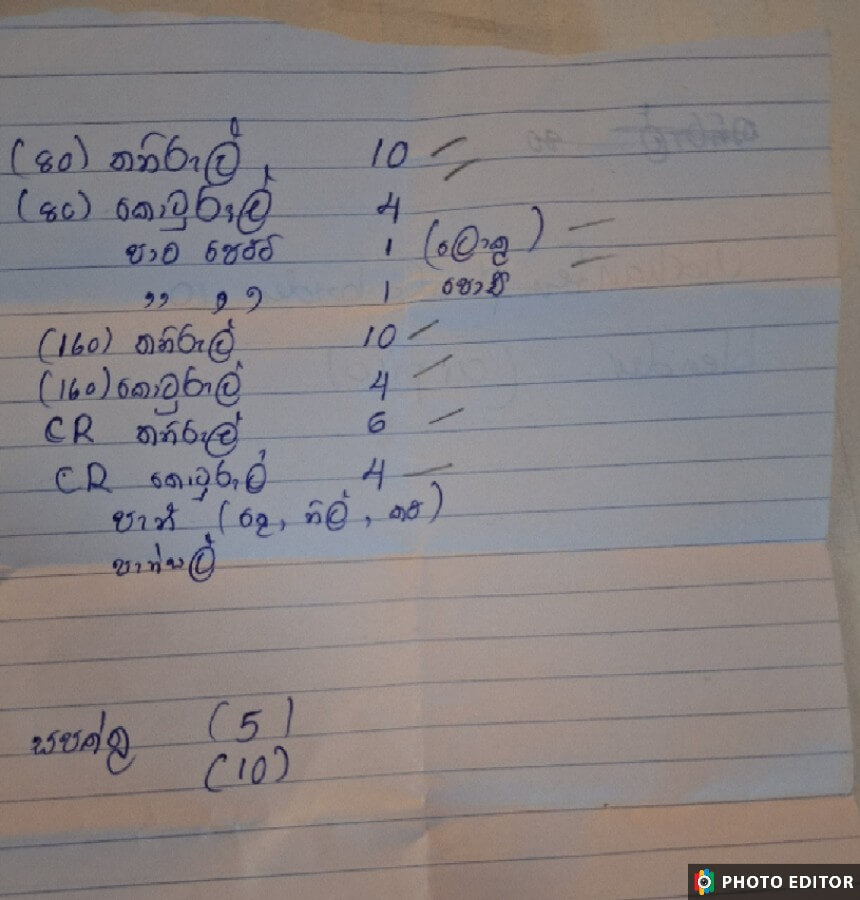 (80) තනිරූල් 10
(80) කොටුරූල් 4
පාට පෙට්ටි 1 (ලොකු)
,, ,, 1 පොඩි
(160) තනිරූල් 10
(160) කොටුරූල් 4
CR තනිරූල් 6
CR කොටුරූල් 4
පෑන් (රතු, නිල්, කළු)
පැන්සල්
සපත්තු (5)
(10)
PHOTO EDITOR